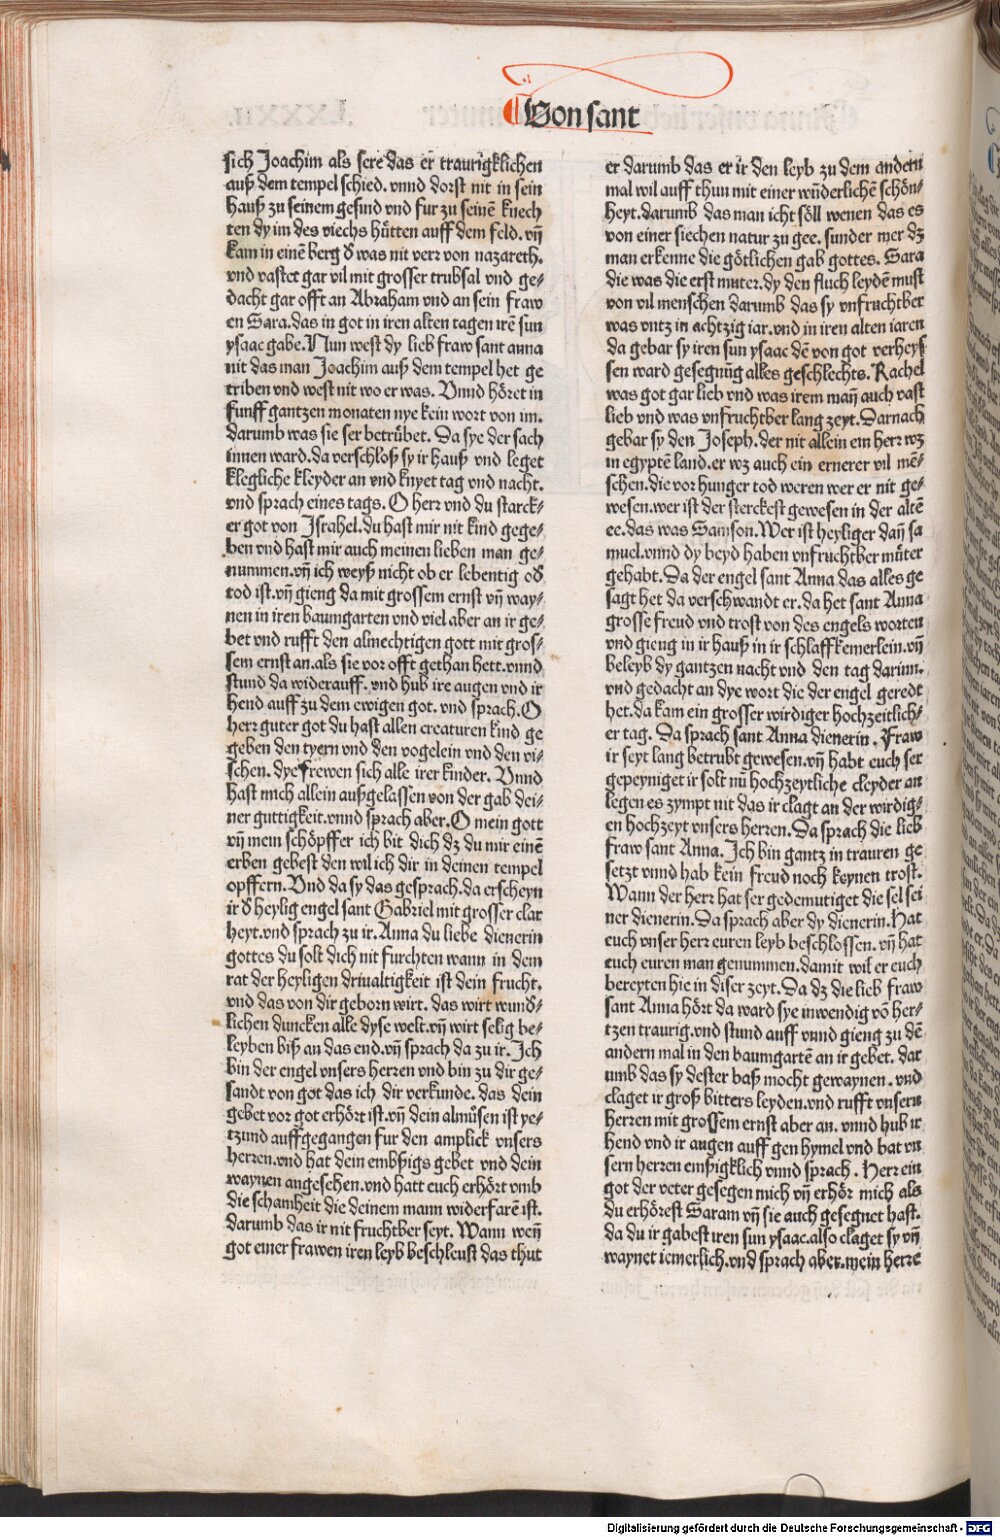 Von sant
sich Joachim als sere das er traurigklichen
auß dem tempel schied. vnnd dorst nit in sein
hauß zu seinem gesind vnd fur zu seinē knech
ten dy im des viechs hütten auff dem feld. vn̄
kam in einē berg d̄ was nit verr von nazareth.
vnd vastet gar vil mit grosser trubsal vnd ge⸗
dacht gar offt an Abraham vnd an sein fraw
en Sara. das in got in iren alten tagen irē sun
ysaac gabe. Nun west dy lieb fraw sant anna
nit das man Joachim auß dem tempel het ge
triben vnd west nit wo er was. Vnnd höret in
funff gantzen monaten nye kein wort von im.
darumb was sie ser betrübet. Da sye der sach
innen ward. da verschloß sy ir hauß vnd leget
klegliche kleyder an vnd knyet tag vnd nacht.
vnd sprach eines tags. O herr vnd du starck⸗
er got von Israhel. du hast mir nit kind gege⸗
ben vnd hast mir auch meinen lieben man ge⸗
nummen. vn̄ ich weyß nicht ob er lebentig od̄
tod ist. vn̄ gieng da mit grossem ernst vn̄ way⸗
nen in iren baumgarten vnd viel aber an ir ge⸗
bet vnd rufft den almechtigen gott mit gros⸗
sem ernst an. als sie vor offt gethan hett. vnnd
stund da widerauff. vnd hub ire augen vnd ir
hend auff zu dem ewigen got. vnd sprach. O
herr guter got du hast allen creaturen kind ge
geben den tyern vnd den vogelein vnd den vi⸗
schen. dye frewen sich alle irer kinder. Vnnd
hast mich allein außgelassen von der gab dei⸗
ner guttigkeit. vnnd sprach aber. O mein gott
vn̄ mein schöpffer ich bit dich dz du mir einē
erben gebest den wil ich dir in deinen tempel
opffern. Vnd da sy das gesprach. da erscheyn
ir d̄ heylig engel sant Gabriel mit grosser clar
heyt. vnd sprach zu ir. Anna du liebe dienerin
gottes du solt dich nit furchten wann in dem
rat der heyligen driualtigkeit ist dein frucht.
vnd das von dir geborn wirt. das wirt wund̄⸗
lichen duncken alle dyse welt. vn̄ wirt selig be⸗
leyben biß an das end. vn̄ sprach da zu ir. Ich
bin der engel vnsers herren vnd bin zu dir ge⸗
sandt von got das ich dir verkunde. das dein
gebet vor got erhört ist. vn̄ dein almůsen ist ye⸗
tzund auffgegangen fur den amplick vnsers
herren. vnd hat dem embßigs gebet vnd dein
waynen angesehen. vnd hatt euch erhört vmb
die schamheit die deinem mann widerfarē ist.
darumb das ir nit fruchtber seyt. Wann wen̄
got einer frawen iren leyb beschleust das thut
er darumb das er ir den leyb zu dem andern
mal wil auff thun mit einer wūderlichē schön⸗
heyt. darumb das man icht söll wenen das es
von einer siechen natur zu gee. sunder mer dz
man erkenne die götlichen gab gottes. Sara
die was die erst muter. dy den fluch leydē must
von vil menschen darumb das sy vnfruchtber
was vntz in achtzig iar. vnd in iren alten iaren
da gebar sy iren sun ysaac dē von got verheys
sen ward gesegnūg alles geschlechts. Rachel
was got gar lieb vnd was irem man̄ auch vast
lieb vnd was vnfruchtber lang zeyt. Darnach
gebar sy den Joseph. der nit allein ein herr wz
in egyptē land. er wz auch ein ernerer vil mē⸗
schen. die vor hunger tod weren wer er nit ge⸗
wesen. wer ist der sterckest gewesen in der altē
ee. das was Samson. Wer ist heyliger dan̄ sa
muel. vnnd dy beyd haben vnfruchtber můter
gehabt. Da der engel sant Anna das alles ge
sagt het da verschwandt er. da het sant Anna
grosse freud vnd trost von des engels worten
vnd gieng in ir hauß in ir schlaffkemerlein. vn̄
beleyb dy gantzen nacht vnd den tag darinn.
vnd gedacht an dye wort die der engel geredt
het. da kam ein grosser wirdiger hochzeitlich⸗
er tag. Da sprach sant Anna dienerin. Fraw
ir seyt lang betrubt gewesen. vn̄ habt euch ser
gepeyniget ir solt nū hochzeytliche cleyder an
legen es zympt nit das ir clagt an der wirdig⸗
en hochzeyt vnsers herren. Da sprach die lieb
fraw sant Anna. Ich bin gantz in trauren ge
setzt vnnd hab kein freud noch keynen trost.
Wann der herr hat ser gedemutiget die sel sei
ner dienerin. Da sprach aber dy dienerin. Hat
euch vnser herr euren leyb beschlossen. vn̄ hat
euch euren man genummen. damit wil er euch
bereyten hie in diser zeyt. Da dz die lieb fraw
sant Anna hört da ward sye inwendig vō her⸗
tzen traurig. vnd stund auff vnnd gieng zu dē
andern mal in den baumgartē an ir gebet. dar
umb das sy dester baß mocht gewaynen. vnd
claget ir groß bitters leyden. vnd rufft vnsern
herren mit grossem ernst aber an. vnnd hub ir
hend vnd ir augen auff gen hymel vnd bat vn
sern herren emßigklich vnnd sprach. Herr ein
got der veter gesegen mich vn̄ erhör mich als
du erhörest Saram vn̄ sie auch gesegnet hast.
da du ir gabest iren sun ysaac. also claget sy vn̄
waynet iemerlich. vnd sprach aber. mein herre
Digitalisierung gefördert durch die Deutsche Forschungsgemeinschaft - DFG